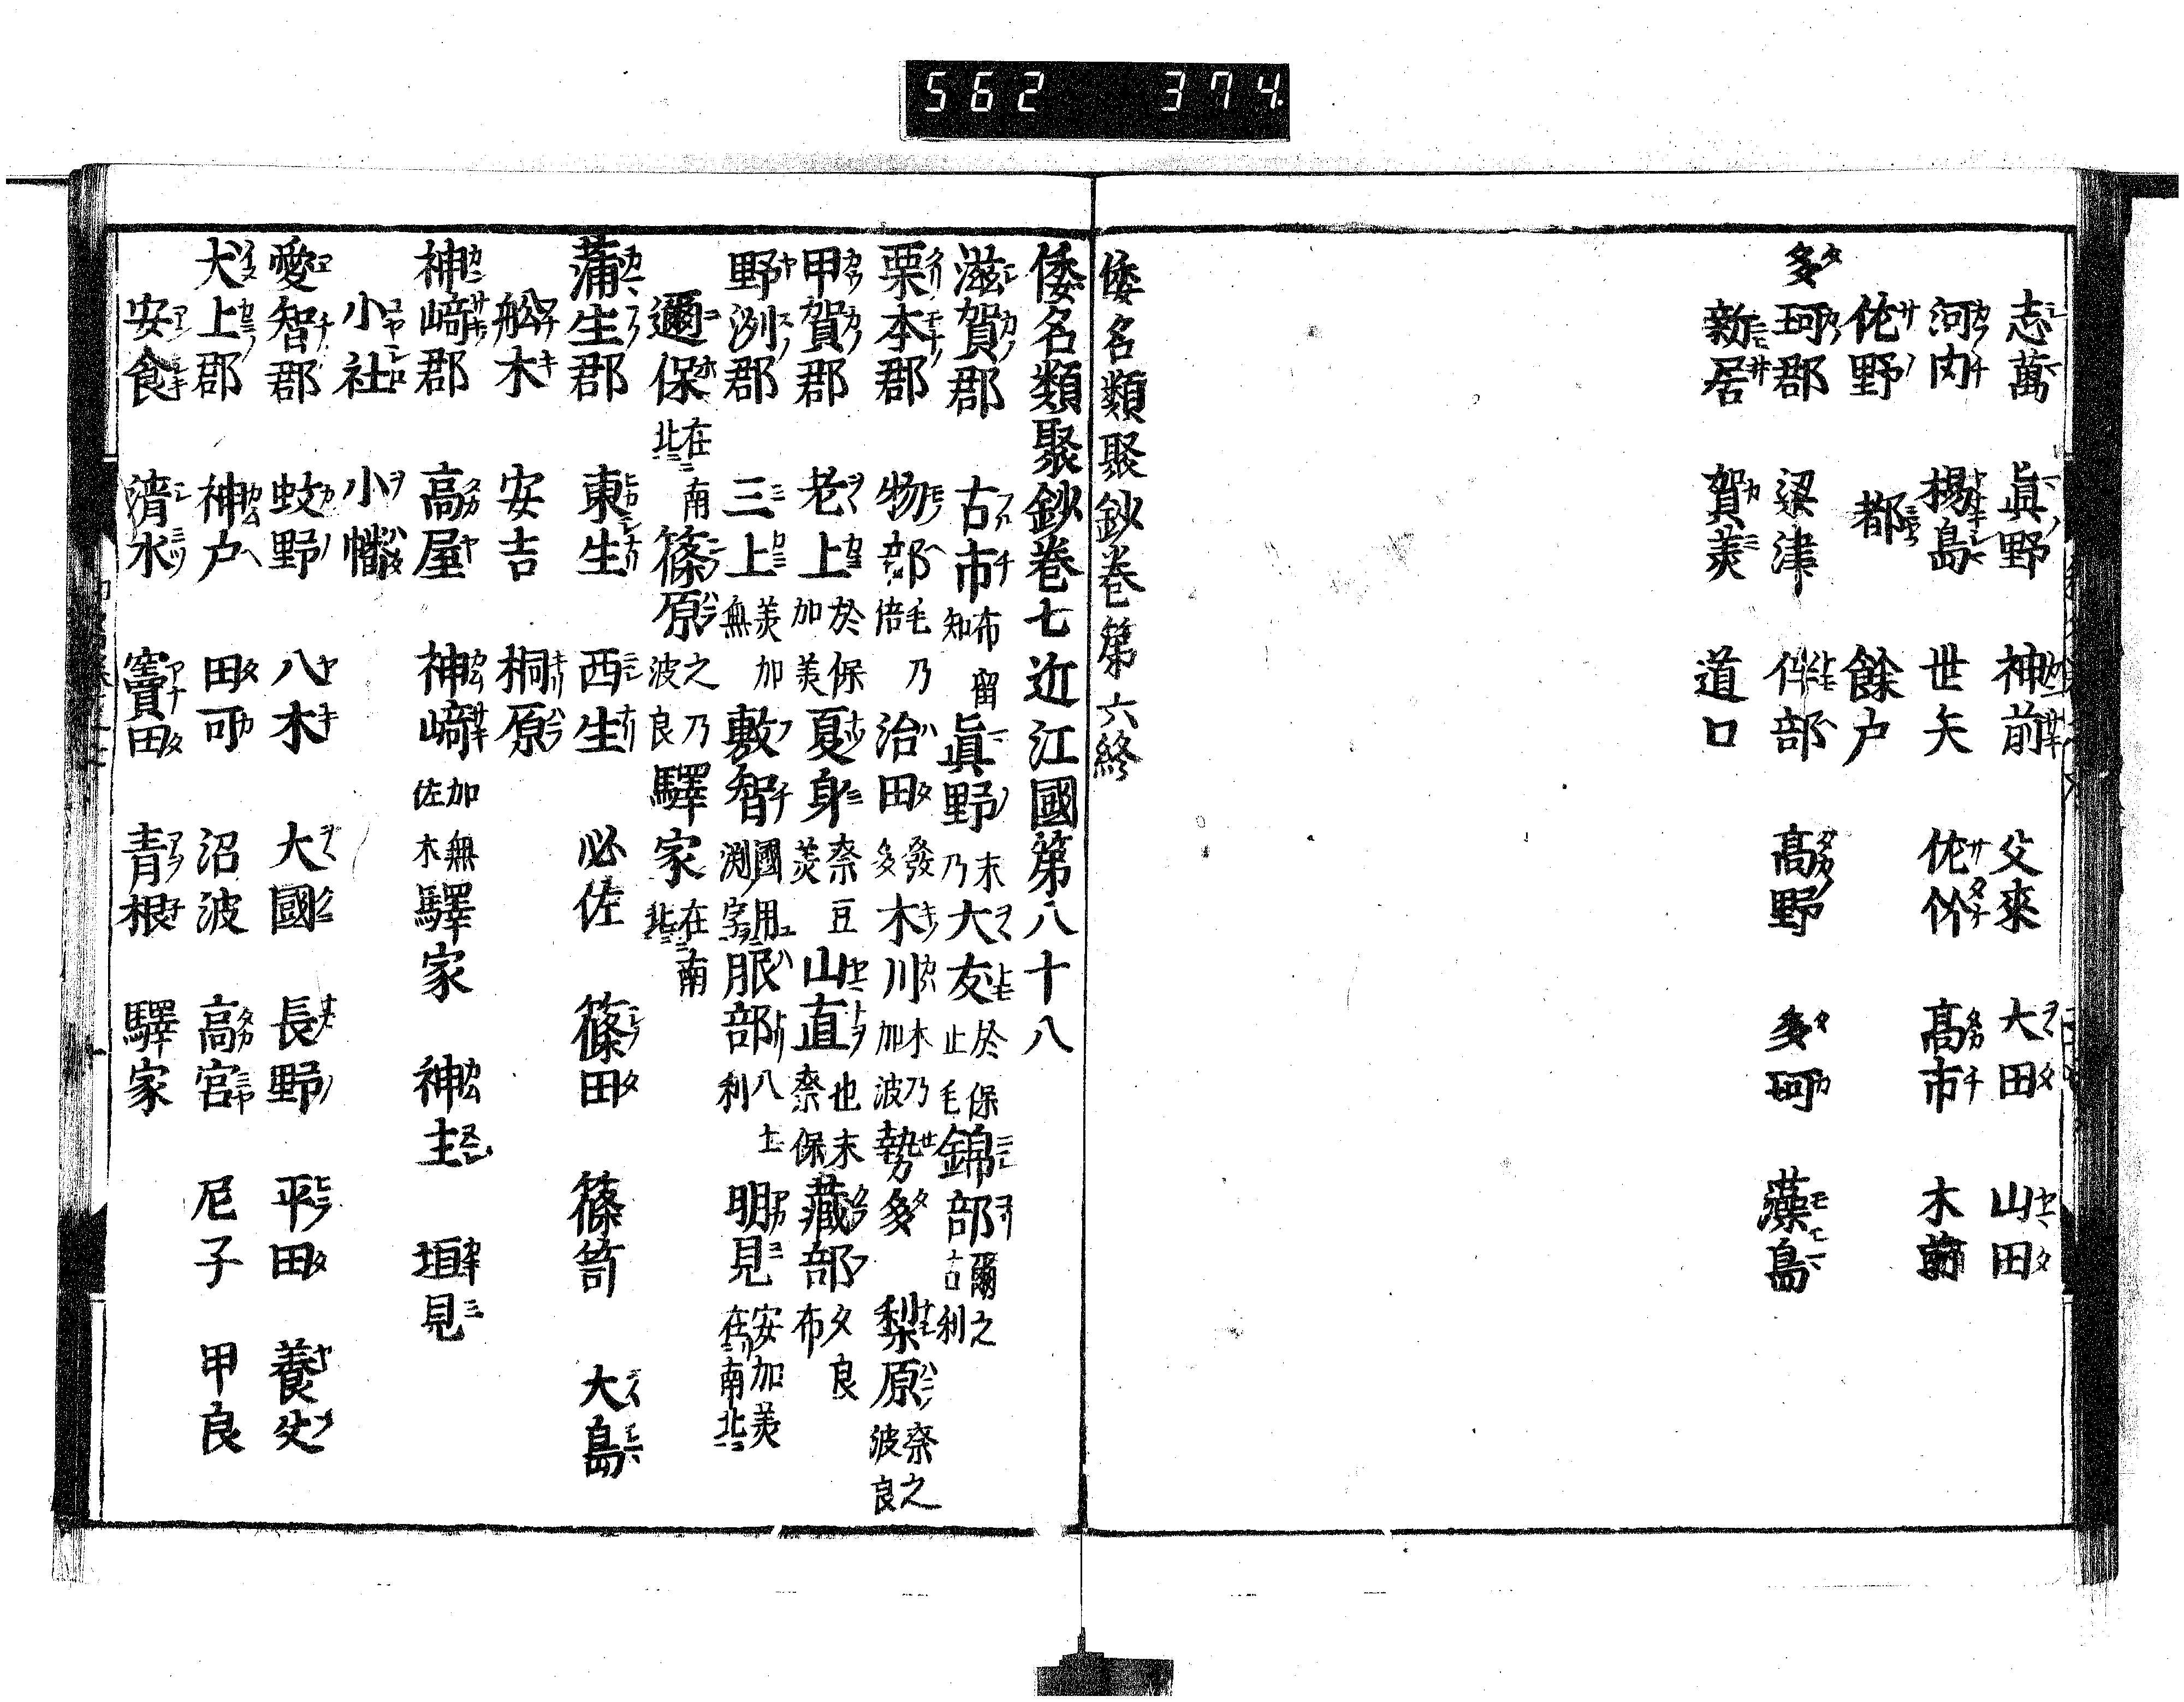 562 374
志萬 眞野 神前 父來 大田 山田
河内 楊島 世矢 佐竹 髙市 木前
佐野 都 餘戸
多珂郡 梁津 伴部 髙野 多珂 藻島
新居 賀美 道口
倭名類聚鈔卷第六終
倭名類聚鈔卷七近江國第八十八
滋賀郡 古市布留知 眞野末乃 大友於保止毛 錦部爾之古利
栗本郡 物部毛乃倍 治田發多 木川木乃加波 勢多 梨原奈之波良
甲賀郡 老上於保加美 夏身奈豆美 山直也末奈保 藏部久良布
野洲郡 三上美加無 敷智國用渕字 服部八土利 明見安加美在南北
邇保在南北 篠原之乃波良 驛家在南北
蒲生郡 東生 西生 必佐 篠田 篠笥 大島
舩木 安吉 桐原
神﨑郡 髙屋 神﨑加無佐木 驛家 神主 垣見
小社 小幡
愛智郡 蚊野 八木 大國 長野 平田 養父
犬上郡 神戸 田可 沼波 髙宮 尼子 甲良
安食 清水 竇田 青根 驛家